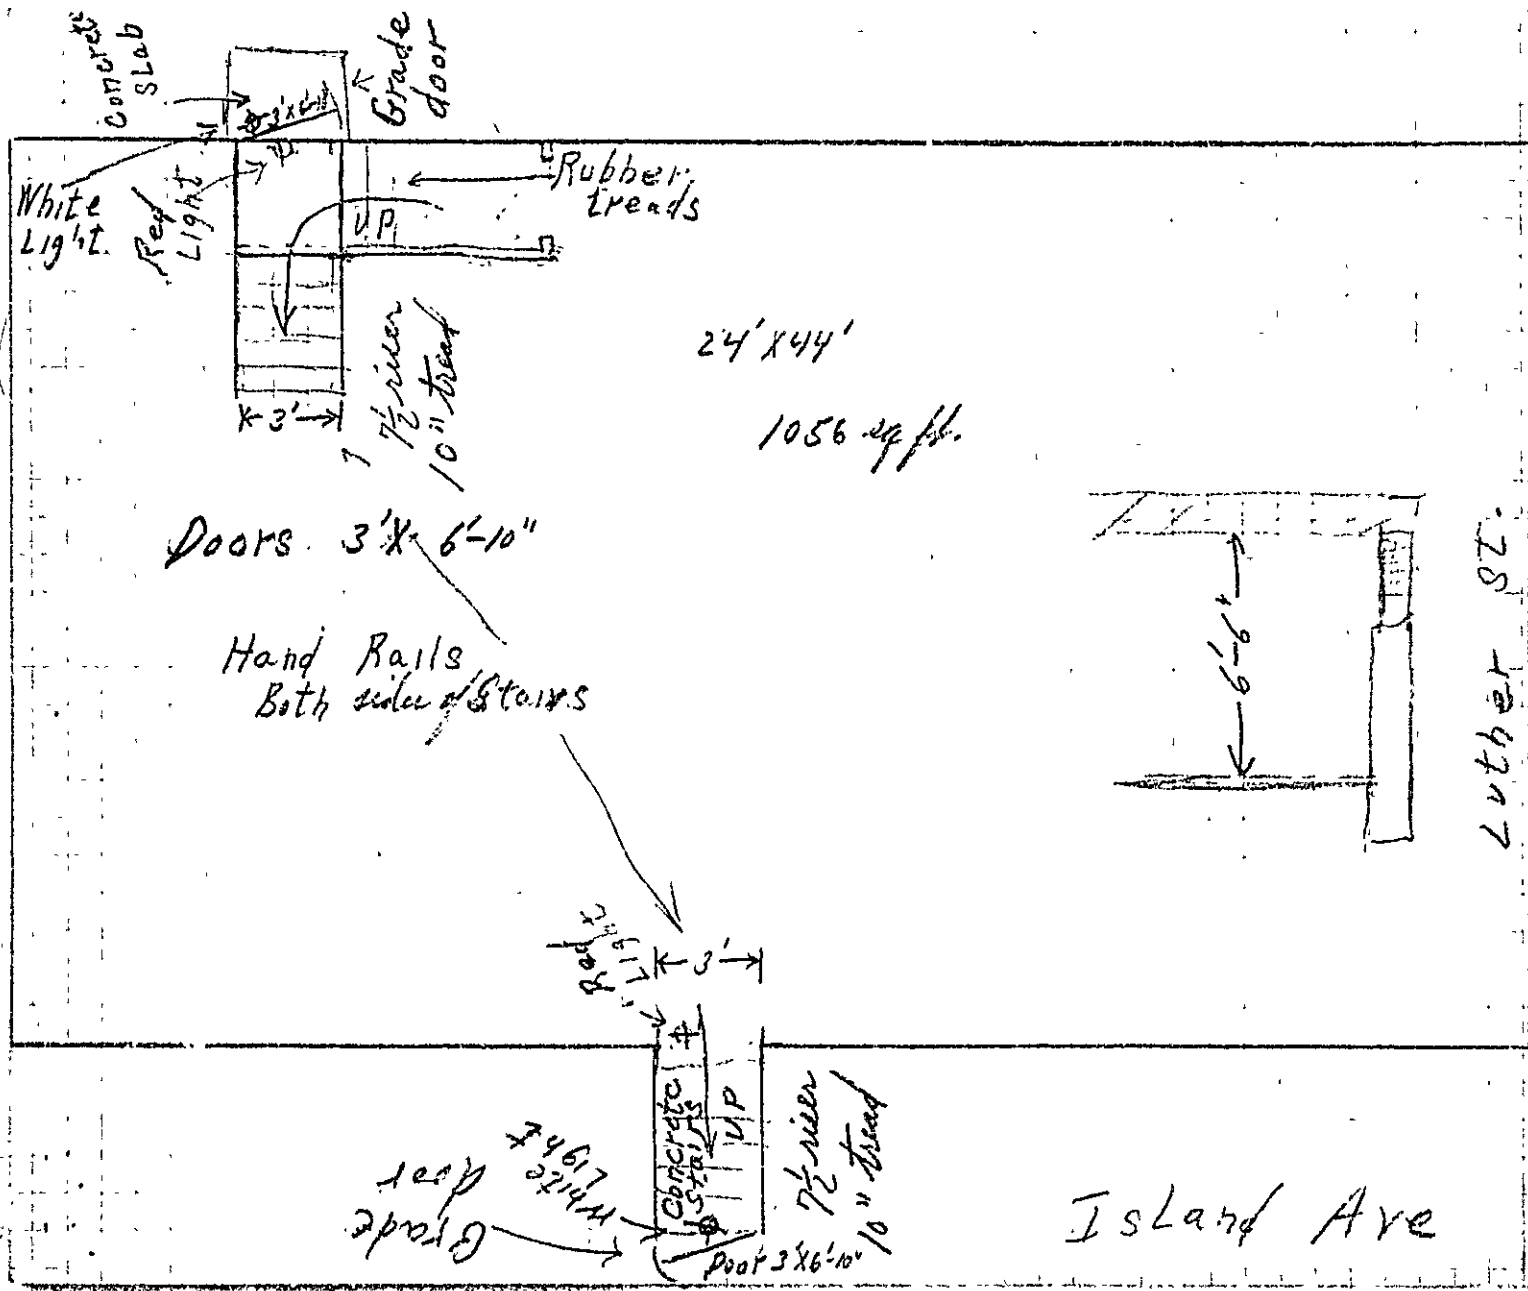 Concrete
SLab
Grade
door
3'x6'-10"
White
Light
Red
Light
Rubber
treads
UP
7½ riser
10" tread
3'
24' X 44'
1056 sq ft.
Doors 3' X 6'-10"
Hand Rails
Both sides of Stairs
6'-6"
Luther ST.
Red
Light
3'
Concrete
Stairs
UP
7½ riser
10" tread
White
Light
Grade
door
Door 3'X6'-10"
Island Ave